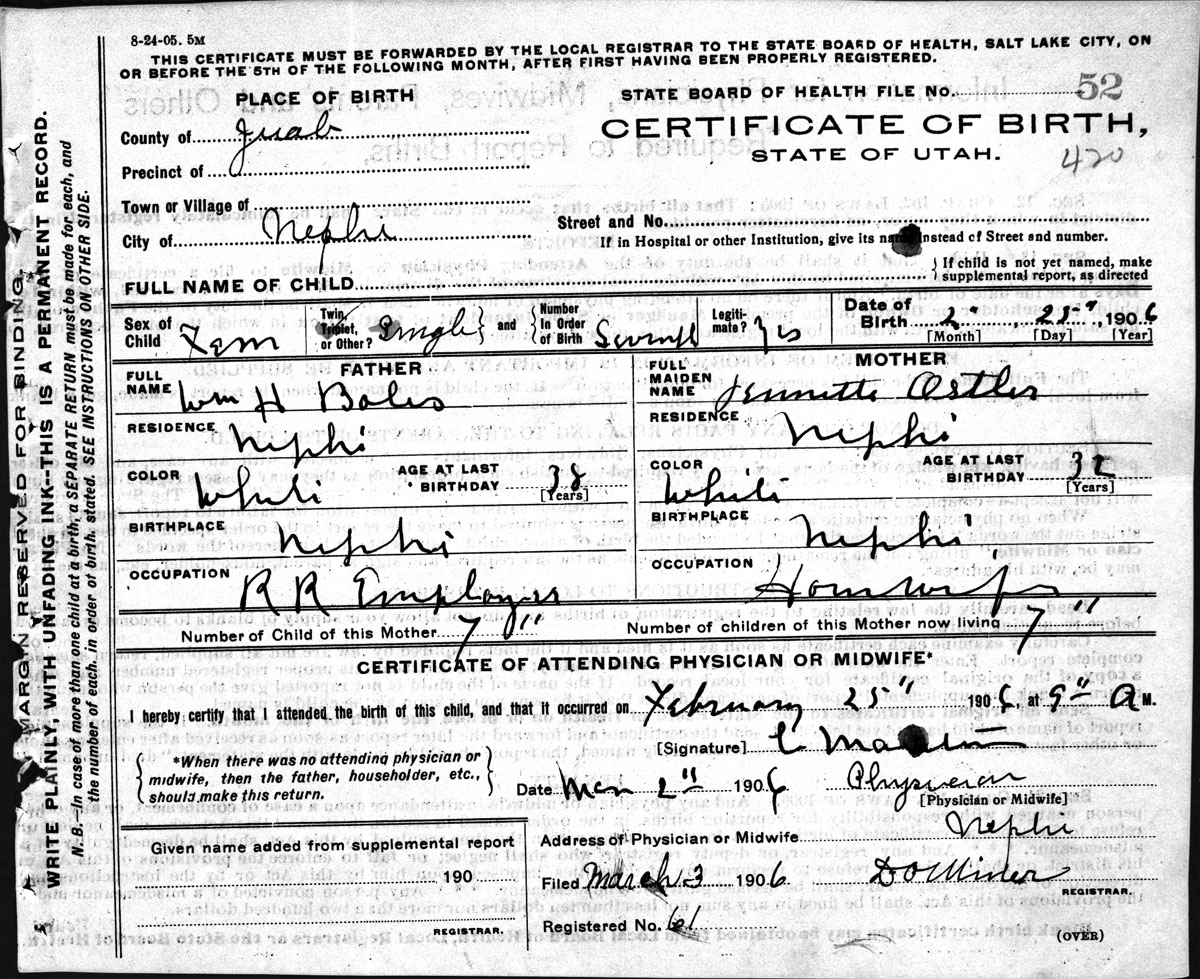 8-24-05. 5M
THIS CERTIFICATE MUST BE FORWARDED BY THE LOCAL REGISTRAR TO THE STATE BOARD OF HEALTH, SALT LAKE CITY, ON
OR BEFORE THE 5TH OF THE FOLLOWING MONTH, AFTER FIRST HAVING BEEN PROPERLY REGISTERED.
PLACE OF BIRTH
STATE BOARD OF HEALTH FILE No. 52
County of Juab
CERTIFICATE OF BIRTH,
STATE OF UTAH.
420
Precinct of
Town or Village of
City of Nephi
Street and No.
If in Hospital or other Institution, give its name instead of Street and number.
FULL NAME OF CHILD
If child is not yet named, make
supplemental report, as directed
Sex of Child Fem
Twin, Triplet, or Other? Single and Number In Order of Birth Seventh
Legitimate? Yes
Date of Birth 2" 25", 1906
[Month] [Day] [Year]
FATHER
FULL NAME Wm H Bales
RESIDENCE Nephi
COLOR White
AGE AT LAST BIRTHDAY 38
[Years]
BIRTHPLACE Nephi
OCCUPATION R R Employee
MOTHER
FULL MAIDEN NAME Jennette Ostler
RESIDENCE Nephi
COLOR White
AGE AT LAST BIRTHDAY 32
[Years]
BIRTHPLACE Nephi
OCCUPATION Housewife
Number of Child of this Mother 7"
Number of children of this Mother now living 7"
CERTIFICATE OF ATTENDING PHYSICIAN OR MIDWIFE*
I hereby certify that I attended the birth of this child, and that it occurred on February 25" 1906, at 9" A M.
*When there was no attending physician or
midwife, then the father, householder, etc.,
should make this return.
[Signature]
Date Mar 2" 1906 Physician
[Physician or Midwife]
Address of Physician or Midwife Nephi
Given name added from supplemental report
190
REGISTRAR.
Filed March 3 1906 D O Miner
REGISTRAR.
Registered No. 61
(OVER)
MARGIN RESERVED FOR BINDING
WRITE PLAINLY, WITH UNFADING INK--THIS IS A PERMANENT RECORD.
N. B.—In case of more than one child at a birth, a SEPARATE RETURN must be made for each, and
the number of each, in order of birth, stated. SEE INSTRUCTIONS ON OTHER SIDE.